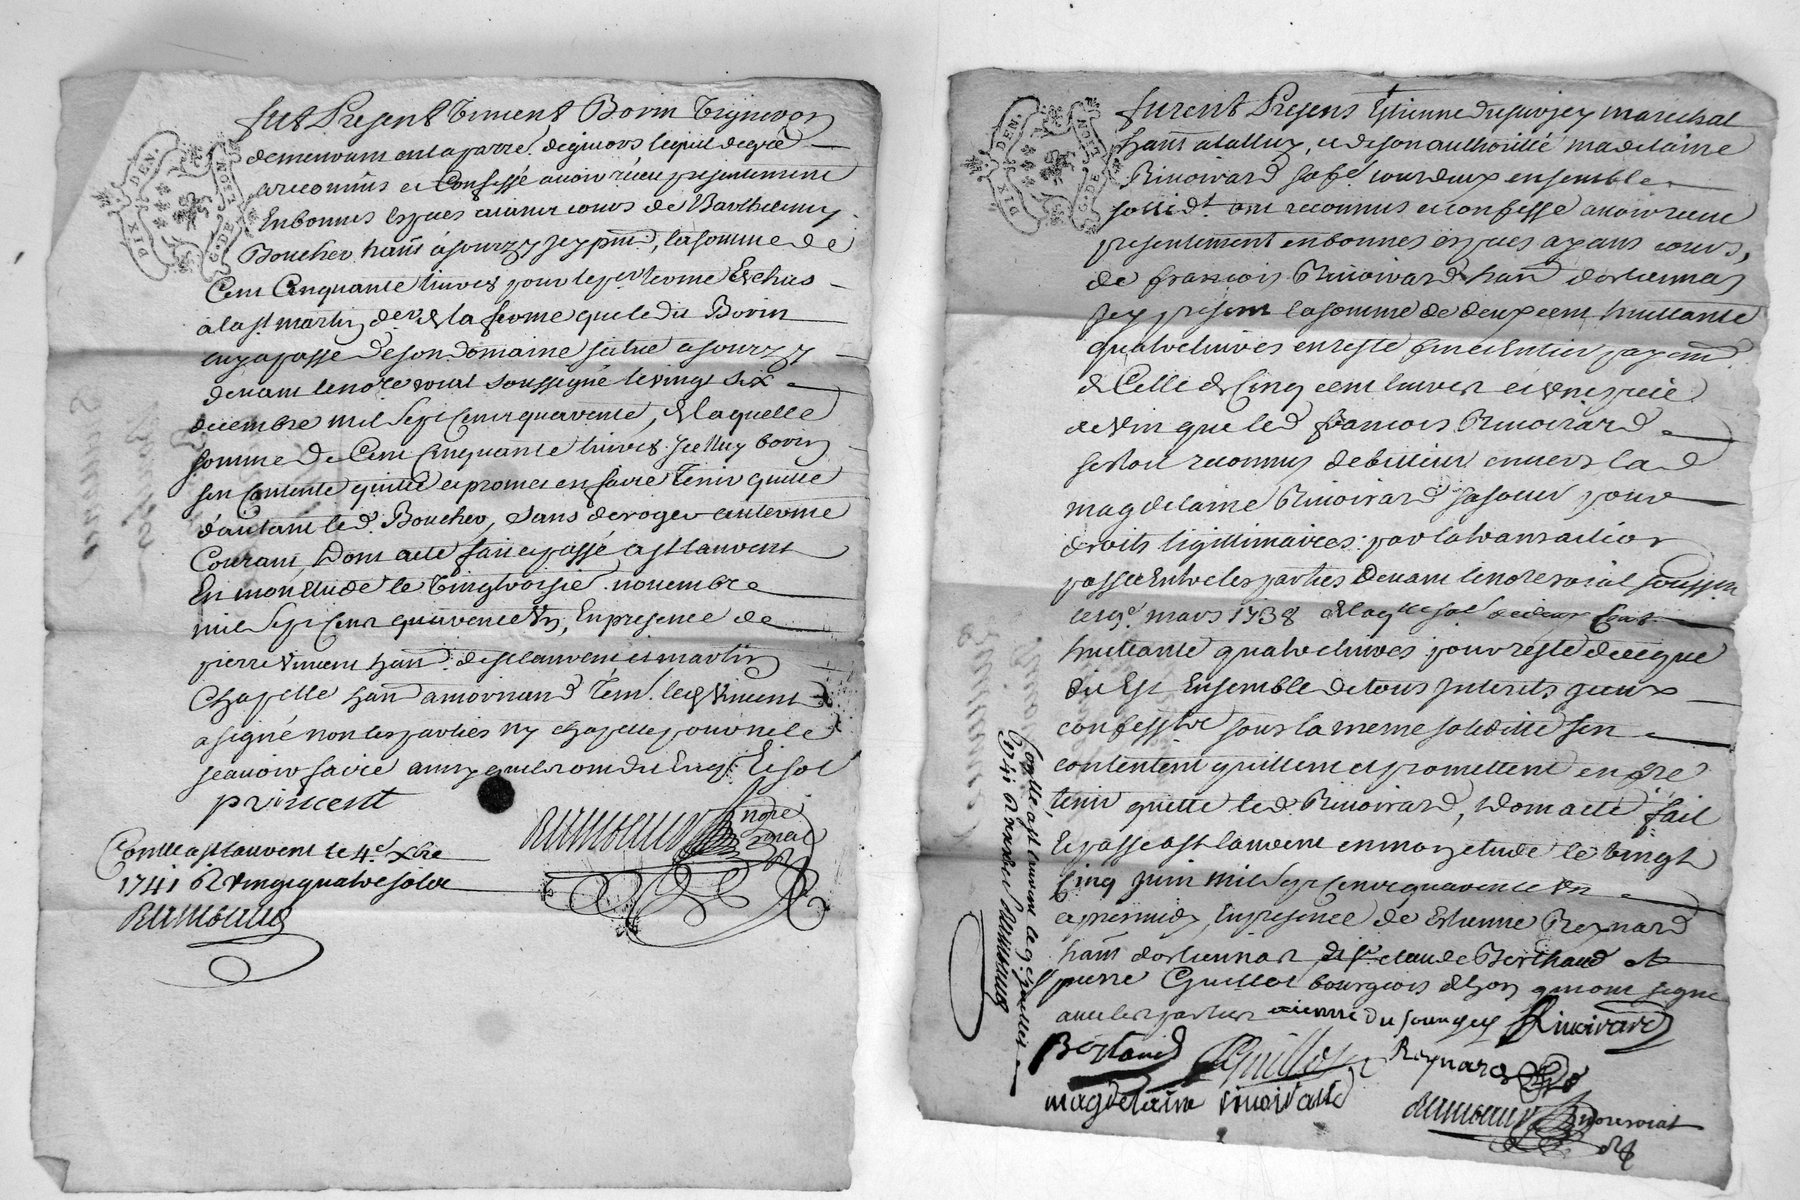 fut Present Climent Borin Vigneron
demeurant en la parre. de givors lequel de gré
a reconnus et Confessé avoir reçeu presentement
En bonnes especes aiant cours de Barthelemy
Boucher hant. à sourzy sey pnt, la somme de
Cent Cinquante livres pour le pr. terme Echus
a la st martin der. de la ferme que le dit Borin
luy a passé de son domaine situé a sourzy
devant le nore. roial soussigné le vingt six
decembre mil Sept Cent quarente, de laquelle
somme de Cent Cinquante livres Icelluy borin
sen Contente quitte et promet en faire tenir quitte
d'autant led. Boucher, sans deroger au terme
Courant, Dont acte fait et passé a st laurent
En mon Etude le Vingtroisie. novembre
mil Sept Cent quarente Un, En presence de
pierre Vincent hant. de st laurent et martin
Chapelle hant. a mornand Tem. led. Vincent
a signé non les parties ny chapelle pour ne le
scavoir faire
p vincent
nore
roial
Conlle a st laurent le 4e. Xbre
1741 R vingt quatre sols
DIX DEN.
G. DE LION
furent Presens Etienne dusurgey marechal
hant. a talluy, et de son authorité madelaine
Rivoirard sa fe. tous deux ensemble
sollidt. ont reconnus et confessé avoir receu
presentement en bonnes especes ayans cours,
de francois Rivoirard hant. dorlienas
sey present la somme de deux cent huittante
quatre livres en reste fin et Entier payemt.
de Celle de Cinq cent livres et une piece
de vin que led. francois Rivoirard
sestoit reconnus debitteur envers lad.
magdelaine Rivoirard sa soeur pour
droits legittimaires par la transaction
passée Entre les parties Devant le nore roial soussigné
le mars 1738 de laqlle so. de deux Cent
huittante quatre livres pour reste de ce que
dit Est Ensemble de tous Interets
confessive sous la meme soliditté sen
contentent quittent et promettent en fre
tenir quitte led. Rivoirard, Dont acte fait
Et passé a st laurent en mon etude le vingt
Cinq juin mil Sept Cent quarente Un
apres midy, En presence de Estienne Reynard
hant. dorlienas claude Berthaud et
pierre Guillot bourgeois de Lyon qui ont signé
avec les parties etienne du sourgey Rivoirard
Guillot Reynard
magdelaine rivoirard
nore roial
DIX DEN.
G. DE LION
Conlle a st laurent le juillet
1741